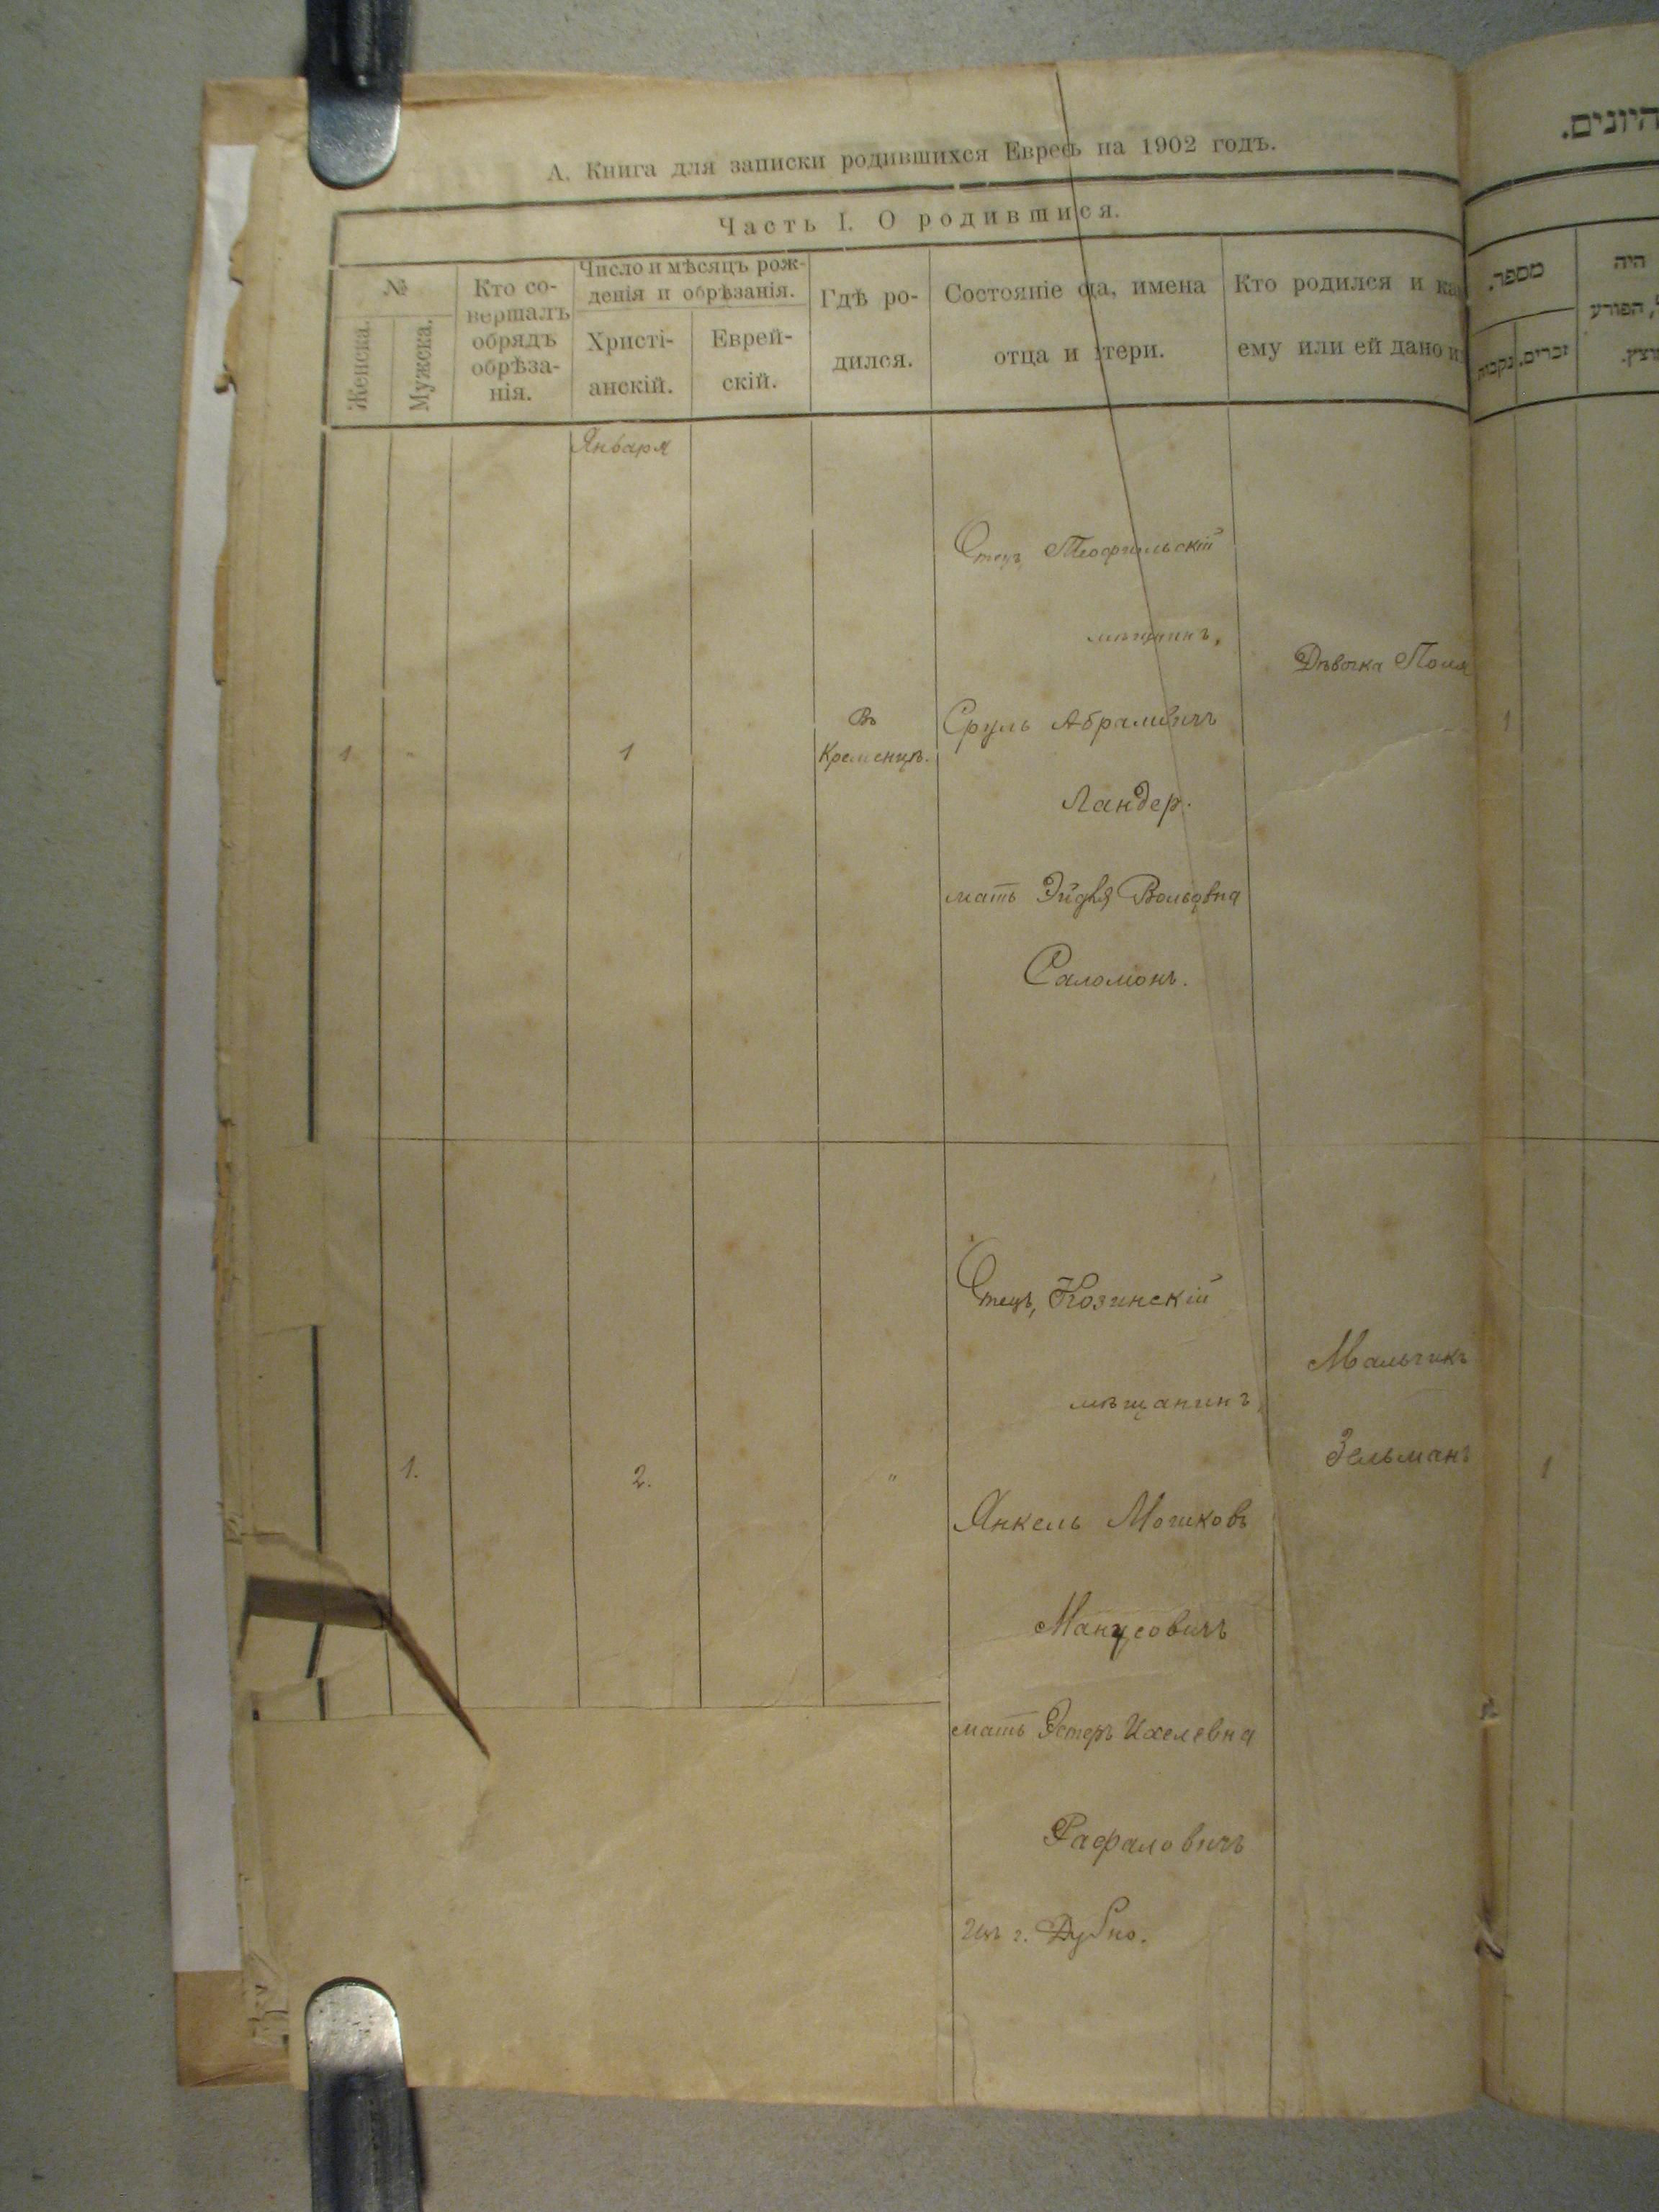 А. Книга для записки родившихся Евреевъ на 1902 годъ.
Часть I. О родившихся.
№
Женска.
Мужска.
Кто со-
вершалъ
обрядъ
обрѣза-
нія.
Число и мѣсяцъ рож-
денія и обрѣзанія.
Христі-
анскій.
Еврей-
скій.
Гдѣ ро-
дился.
Состояніе отца, имена
отца и матери.
Кто родился и ка
ему или ей дано и
Января
1
"
1
Въ
Кременцѣ.
Отецъ Теофильскій
мѣщанинъ,
Сруль Абрамовичъ
Ландер.
мать Эйдля Вольфовна
Саломонъ.
Дѣвочка Поля
1.
2.
"
Отецъ, Козинскій
мѣщанинъ,
Янкель Мошковъ
Манусовичъ
мать Эстеръ Ихелевна
Рафаловичъ
Изъ г. Дубно.
Мальчикъ
Зельманъ
היונים.
מספר.
זכרים.
נקבות
היה
הפורע
1
1